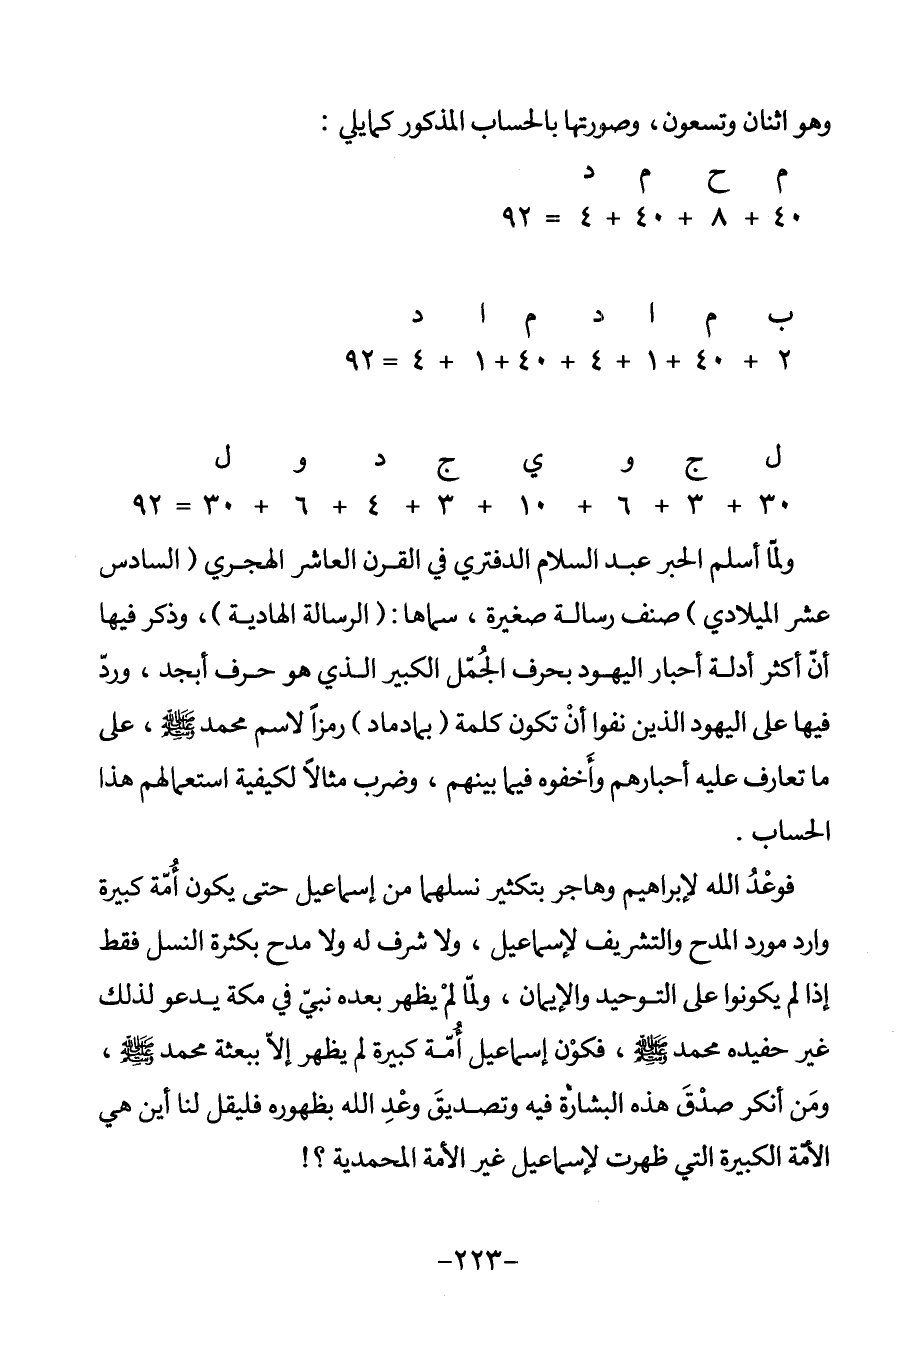 وهو اثنان وتسعون، وصورتها بالحساب المذكور كمايلي :
م ح م د
٤٠ + ٨ + ٤٠ + ٤ = ٩٢
ب م ا د م ا د
٢ + ٤٠ + ١ + ٤ + ٤٠ + ١ + ٤ = ٩٢
ل ج و ي ج د و ل
٣٠ + ٣ + ٦ + ١٠ + ٣ + ٤ + ٦ + ٣٠ = ٩٢
ولمّا أسلم الحبر عبد السلام الدفتري في القرن العاشر الهجري ( السادس
عشر الميلادي ) صنف رسالة صغيرة ، سماها : ( الرسالة الهادية ) ، وذكر فيها
أنّ أكثر أدلة أحبار اليهود بحرف الجُمّل الكبير الذي هو حرف أبجد ، وردّ
فيها على اليهود الذين نفوا أنْ تكون كلمة ( بمادماد ) رمزاً لاسم محمد ﷺ ، على
ما تعارف عليه أحبارهم وأَخفوه فيما بينهم ، وضرب مثالاً لكيفية استعمالهم هذا
الحساب .
فوعْدُ الله لإبراهيم وهاجر بتكثير نسلهما من إسماعيل حتى يكون أُمّة كبيرة
وارد مورد المدح والتشريف لإسماعيل ، ولا شرف له ولا مدح بكثرة النسل فقط
إذا لم يكونوا على التوحيد والإيمان ، ولمّا لمْ يظهر بعده نبيّ في مكة يدعو لذلك
غير حفيده محمد ﷺ ، فكوْن إسماعيل أُمّة كبيرة لم يظهر إلاّ ببعثة محمد ﷺ ،
ومَن أنكر صدْقَ هذه البشارة فيه وتصديقَ وعْدِ الله بظهوره فليقل لنا أين هي
الأمّة الكبيرة التي ظهرت لإسماعيل غير الأمة المحمدية ؟!
-٢٢٣-